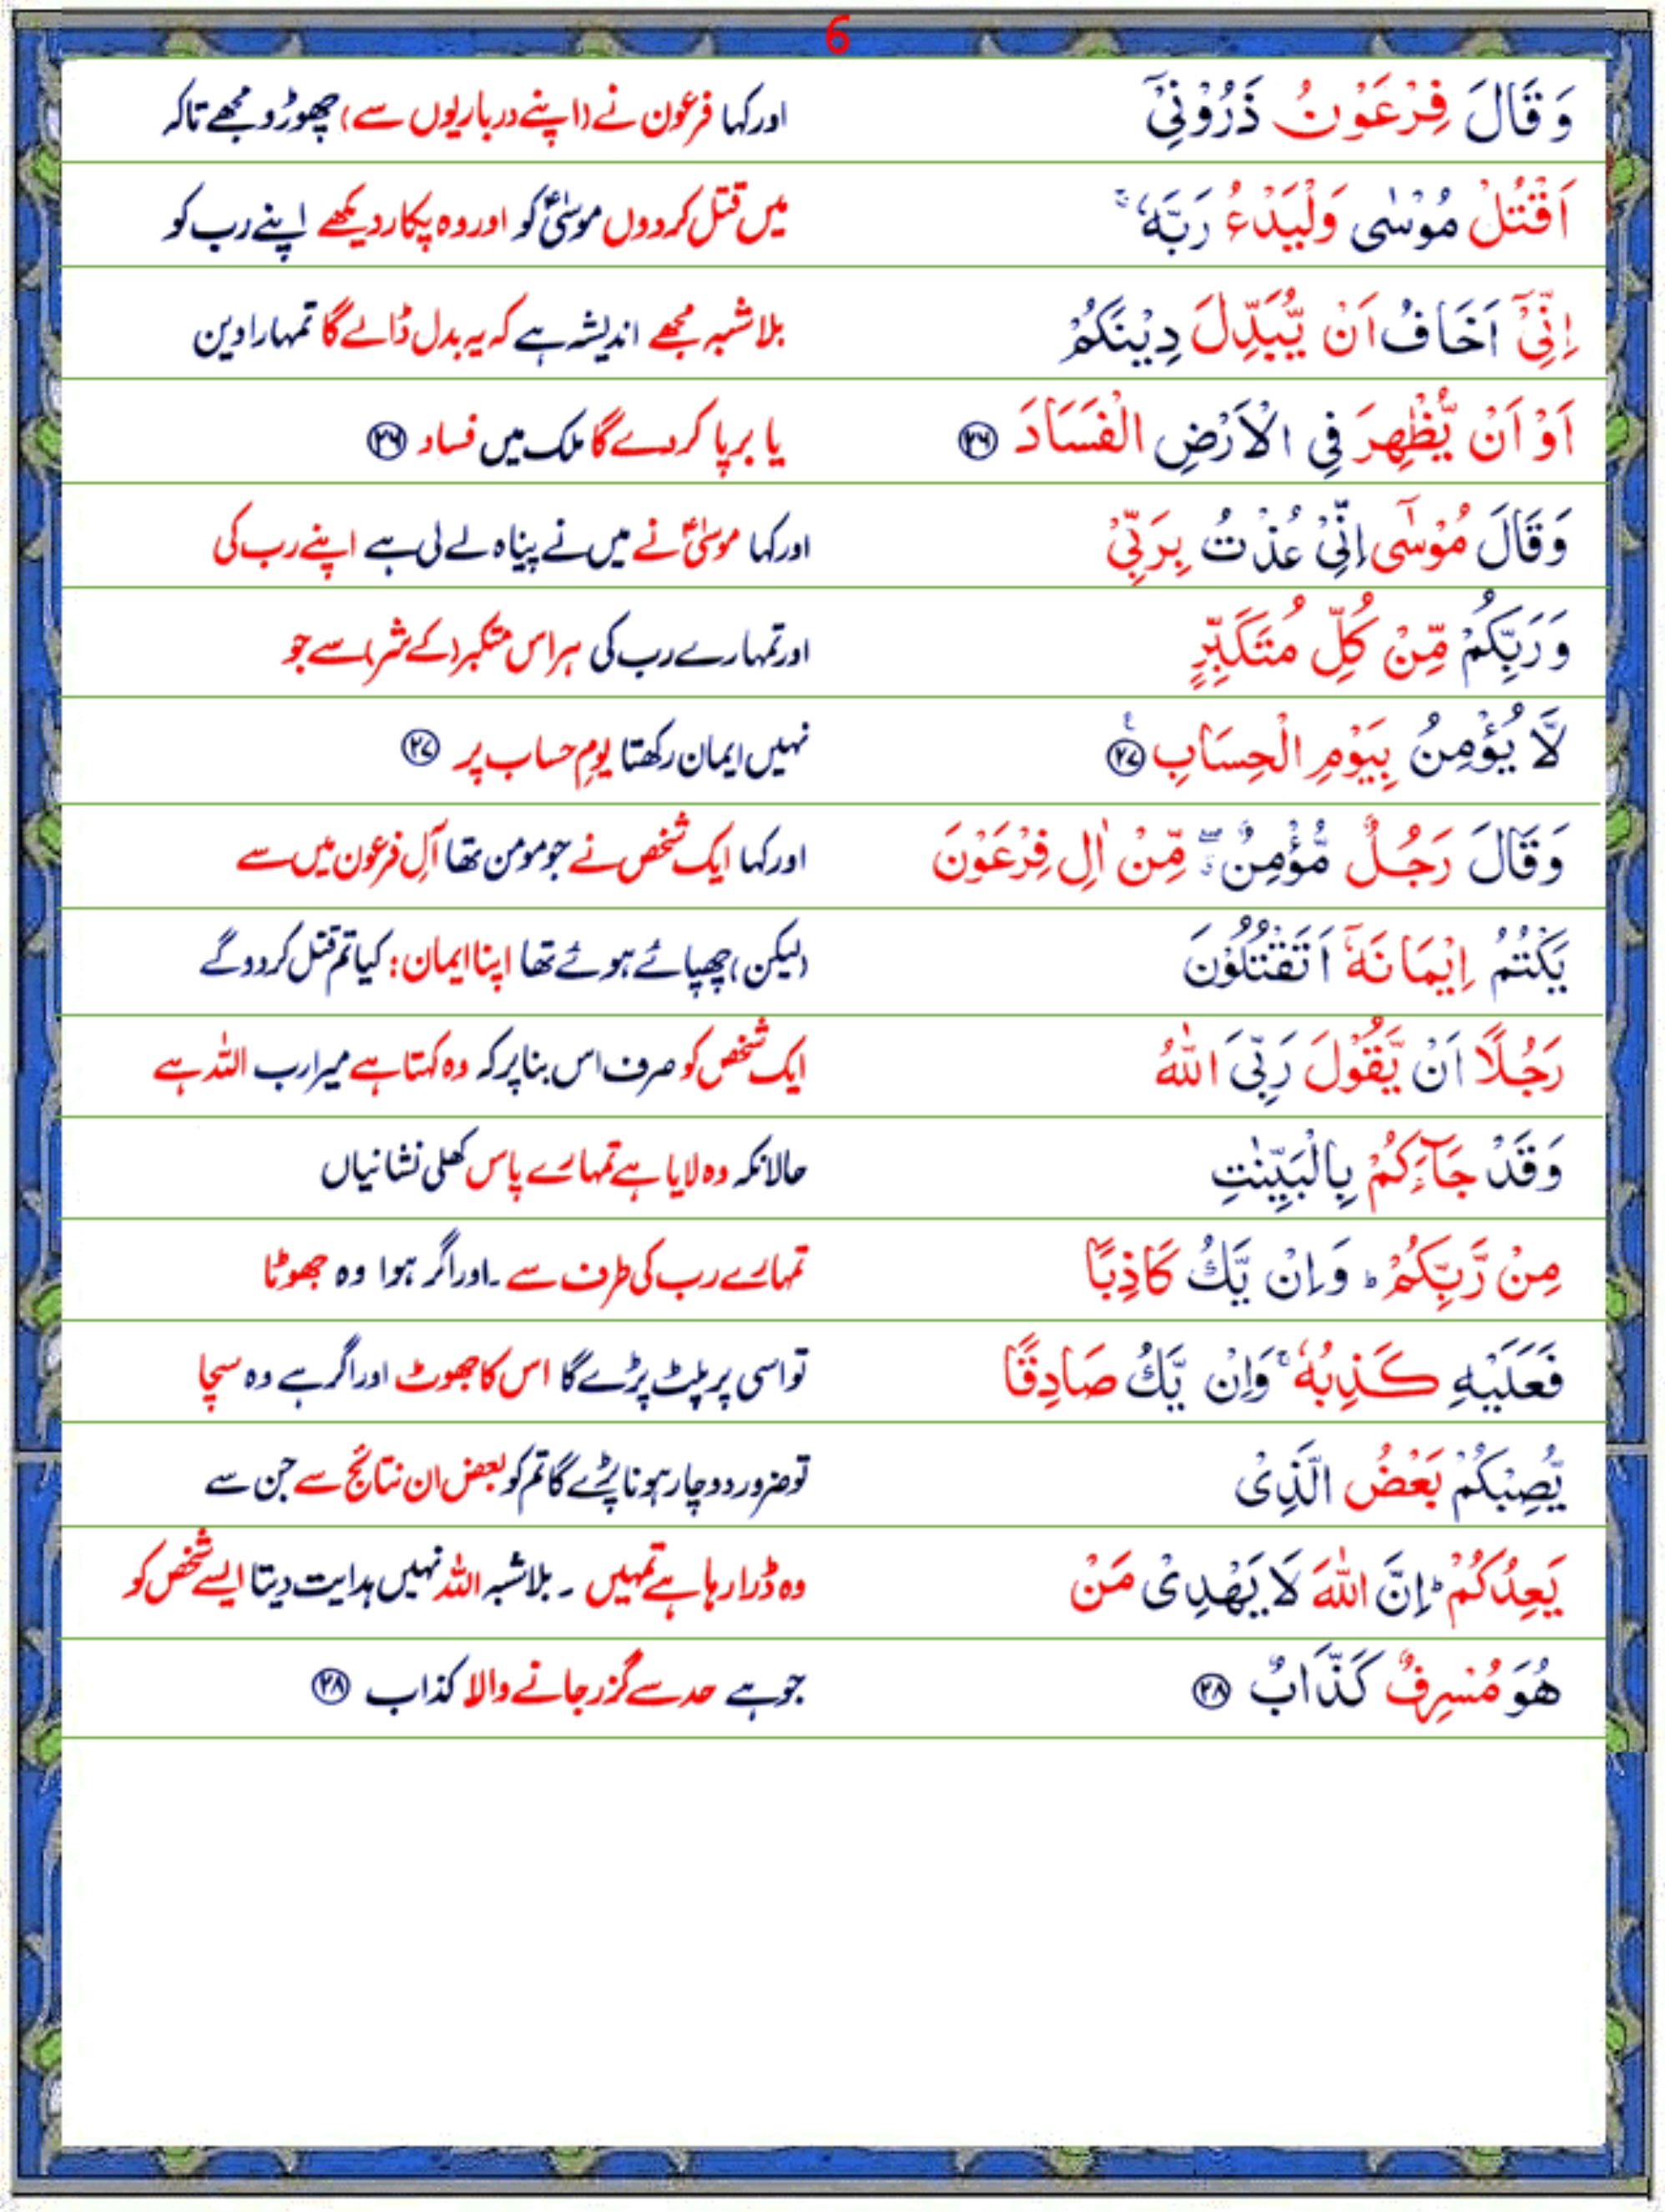 6
وَقَالَ فِرْعَوْنُ ذَرُوْنِیْۤ
اورکہا فرعون نے (اپنے درباریوں سے) چھوڑو مجھے تاکہ
اَقْتُلْ مُوْسٰی وَلْیَدْعُ رَبَّهٗ ۚ
میں قتل کردوں موسیٰؑ کو اور وہ پکار دیکھے اپنے رب کو
اِنِّیْۤ اَخَافُ اَنْ یُّبَدِّلَ دِیْنَكُمْ
بلاشبہ مجھے اندیشہ ہے کہ یہ بدل ڈالے گا تمہارا دین
اَوْ اَنْ یُّظْهِرَ فِی الْاَرْضِ الْفَسَادَ ۲۶
یا برپا کردے گا ملک میں فساد ۲۶
وَقَالَ مُوْسٰۤی اِنِّیْ عُذْتُ بِرَبِّیْ
اورکہا موسیٰؑ نے میں نے پناہ لے لی ہے اپنے رب کی
وَرَبِّكُمْ مِّنْ كُلِّ مُتَكَبِّرٍ
اور تمہارے رب کی ہر اس متکبر (کے شر) سے جو
لَّا یُؤْمِنُ بِیَوْمِ الْحِسَابِ ۲۷ ع
نہیں ایمان رکھتا یومِ حساب پر ۲۷
وَقَالَ رَجُلٌ مُّؤْمِنٌ ۖ ق مِّنْ اٰلِ فِرْعَوْنَ
اورکہا ایک شخص نے جو مومن تھا آلِ فرعون میں سے
یَكْتُمُ اِیْمَانَهٗۤ اَتَقْتُلُوْنَ
(لیکن) چھپائے ہوئے تھا اپنا ایمان: کیا تم قتل کردو گے
رَجُلًا اَنْ یَّقُوْلَ رَبِّیَ اللّٰهُ
ایک شخص کو صرف اس بنا پر کہ وہ کہتا ہے میرا رب اللہ ہے
وَقَدْ جَآءَكُمْ بِالْبَیِّنٰتِ
حالانکہ وہ لایا ہے تمہارے پاس کھلی نشانیاں
مِنْ رَّبِّكُمْ ؕ وَاِنْ یَّكُ كَاذِبًا
تمہارے رب کی طرف سے ۔اور اگر ہوا وہ جھوٹا
فَعَلَیْهِ كَذِبُهٗ ۚ وَاِنْ یَّكُ صَادِقًا
تو اسی پر پلٹ پڑے گا اس کا جھوٹ اور اگر ہے وہ سچا
یُّصِبْكُمْ بَعْضُ الَّذِیْ
تو ضرور دوچار ہونا پڑے گا تم کو بعض ان نتائج سے جن سے
یَعِدُكُمْ ؕ اِنَّ اللّٰهَ لَا یَهْدِیْ مَنْ
وہ ڈرا رہا ہے تمہیں ۔ بلاشبہ اللہ نہیں ہدایت دیتا ایسے شخص کو
هُوَ مُسْرِفٌ كَذَّابٌ ۲۸
جو ہے حد سے گزر جانے والا کذاب ۲۸